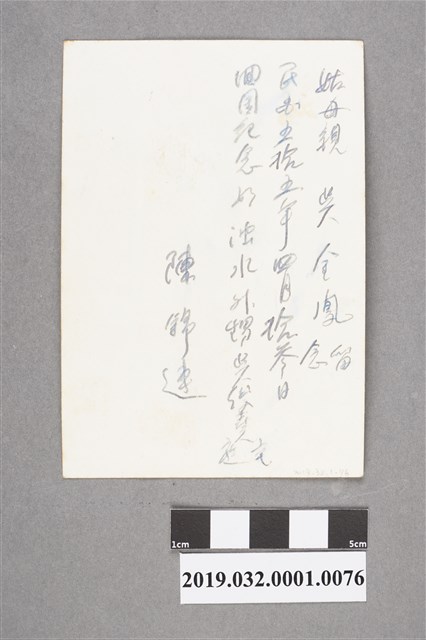 姑母親 吳金鳳 留念
民國五拾五年四月拾叁日
回国紀念於濁水外甥吳
宅
陳錦連
1cm
5cm
2019.032.0001.0076